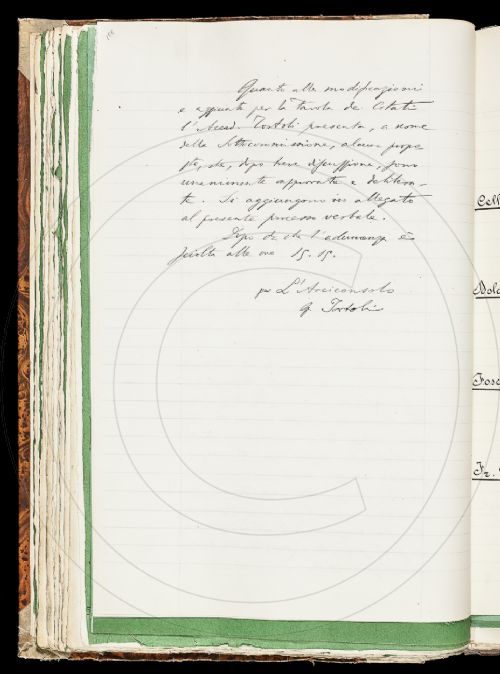 Quanto alle modificazioni
e aggiunte per la Tavola de' Citati
l'Accad. Tortoli presenta, a nome
della Sottocommissione, alcune propo
ste, che, dopo breve discussione, sono
unanimemente approvate e delibera-
te. Si aggiungono in allegato
al presente processo verbale.
Dopo di che l'adunanza è
sciolta alle ore 15.15.
L'Arciconsolo
G. Tortoli
Cell
Dola
Fosc
Fr.